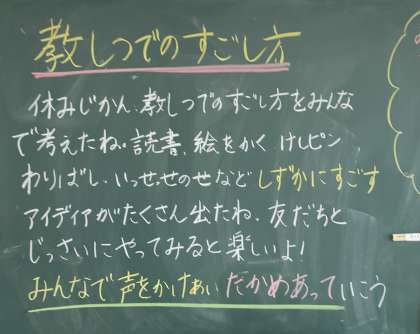 教しつでのすごし方
休みじかん、教しつでのすごし方をみんな
で考えたね。読書、絵をかく、けしピン
わりばし、いっせっせのせなど しずかにすごす
アイディアがたくさん出たね、友だちと
じっさいにやってみると楽しいよ!
みんなで声をかけあいたかめあっていこう